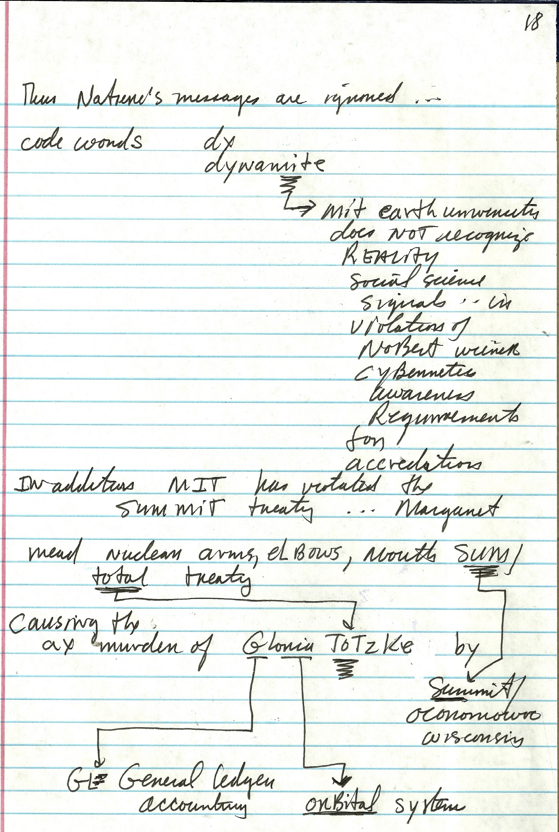 18
Thus Nature's messages are ignored ...
code words dx
dynamite
mit earth universities
does NOT recognize
REALITY
social science
signals .. in
violation of
NoBert weiner
cyBernetic
awareness
Requirements
for
accredations
In additions MIT has violated the
SUMMIT treaty ... Margaret
mead nuclear arms, eLBows, mouth SUM/
total treaty
Causing the
ax murder of Gloria ToTzKe by
Summit/
oconomowoc
wisconsin
GL General Ledger
accounting orBital system